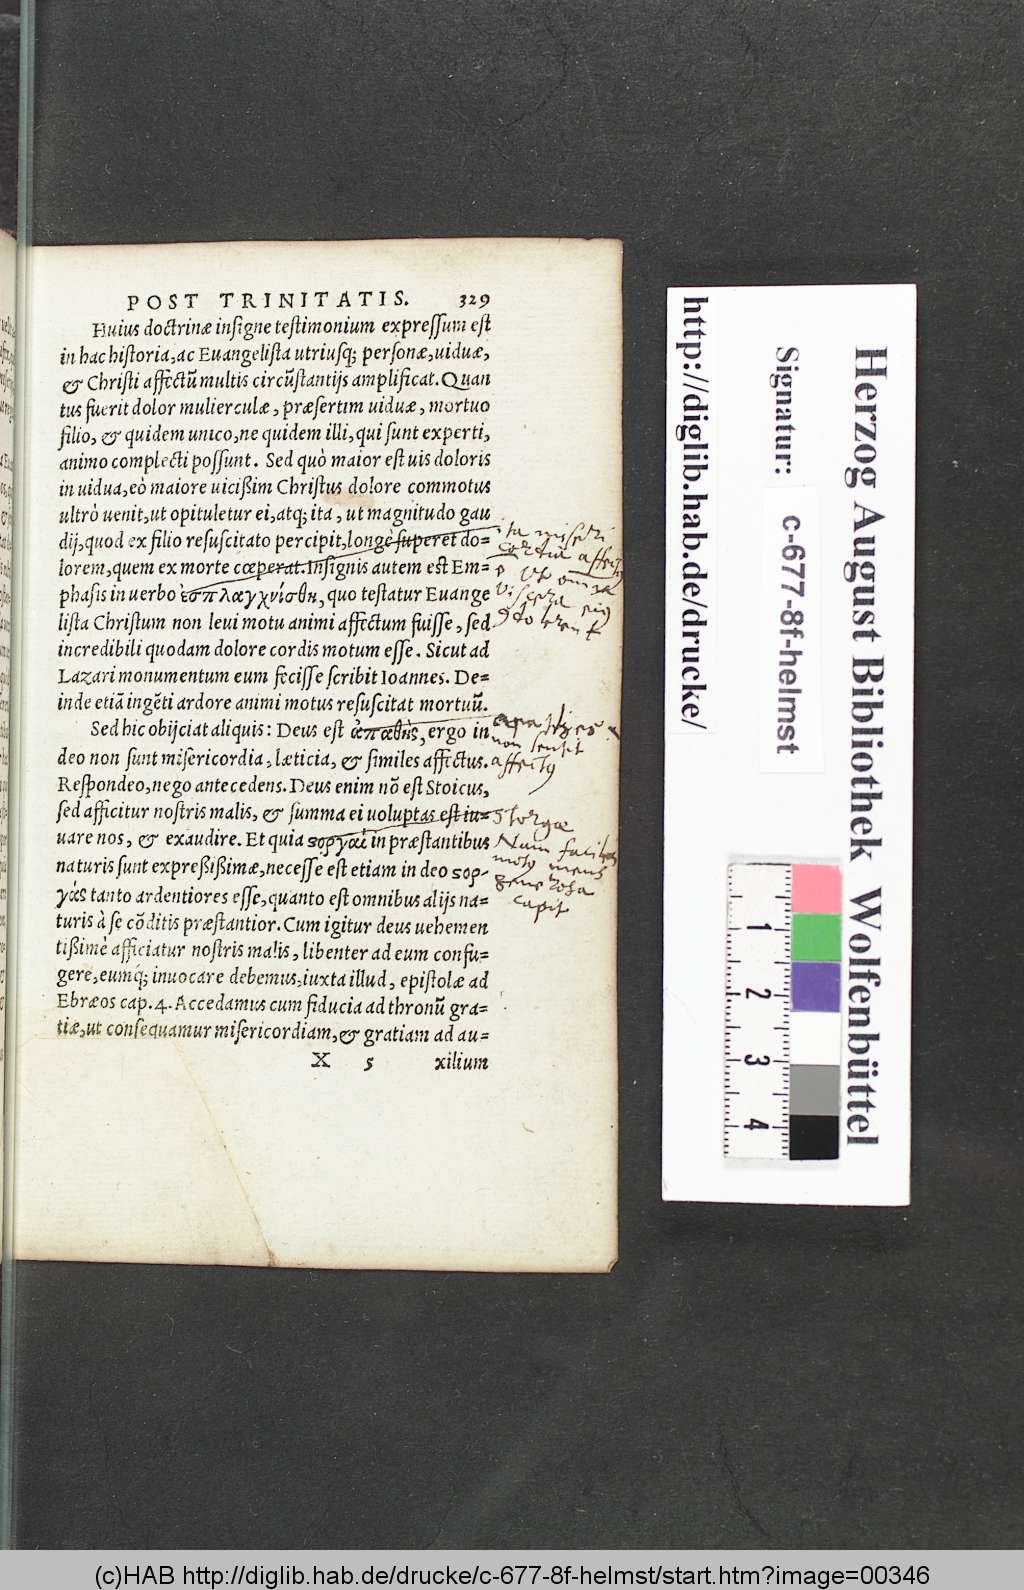 POST TRINITATIS. 329
Huius doctrinæ insigne testimonium expressum est
in hac historia, ac Euangelista utriusq; personæ, uiduæ,
& Christi affectũ multis circũstantijs amplificat. Quan
tus fuerit dolor mulierculæ, præsertim uiduæ, mortuo
filio, & quidem unico, ne quidem illi, qui sunt experti,
animo complecti possunt. Sed quò maior est uis doloris
in uidua, eò maiore uicißim Christus dolore commotus
ultrò uenit, ut opituletur ei, atq; ita, ut magnitudo gau
dij, quod ex filio resuscitato percipit, longè superet do=
lorem, quem ex morte cœperat. Insignis autem est Em=
phasis in uerbo ἐσπλαγχνίσθη, quo testatur Euange
lista Christum non leui motu animi affectum fuisse, sed
incredibili quodam dolore cordis motum esse. Sicut ad
Lazari monumentum eum fecisse scribit Ioannes. De=
inde etiã ingẽti ardore animi motus resuscitat mortuũ.
Sed hic obijciat aliquis: Deus est ἀπαθὴς, ergo in
deo non sunt misericordia, læticia, & similes affectus.
Respondeo, nego antecedens. Deus enim nõ est Stoicus,
sed afficitur nostris malis, & summa ei uoluptas est iu=
uare nos, & exaudire. Et quia ϛοργαὶ in præstantibus
naturis sunt expreßißimæ, necesse est etiam in deo ϛορ-
γὰς tanto ardentiores esse, quanto est omnibus alijs na=
turis à se cõditis præstantior. Cum igitur deus uehemen
tißimè afficiatur nostris malis, libenter ad eum confu=
gere, eumq́; inuocare debemus, iuxta illud, epistolæ ad
Ebræos cap. 4. Accedamus cum fiducia ad thronũ gra=
tiæ, ut consequamur misericordiam, & gratiam ad au=
X 5 xilium
ita miseri
affectus
ut omnia
viscera eius
apathes
non sentit
affectus
Storgæ
Nam faciles
motus mens
generosa
capit
Herzog August Bibliothek Wolfenbüttel
Signatur: c-677-8f-helmst
http://diglib.hab.de/drucke/
1
2
3
4
(c)HAB http://diglib.hab.de/drucke/c-677-8f-helmst/start.htm?image=00346